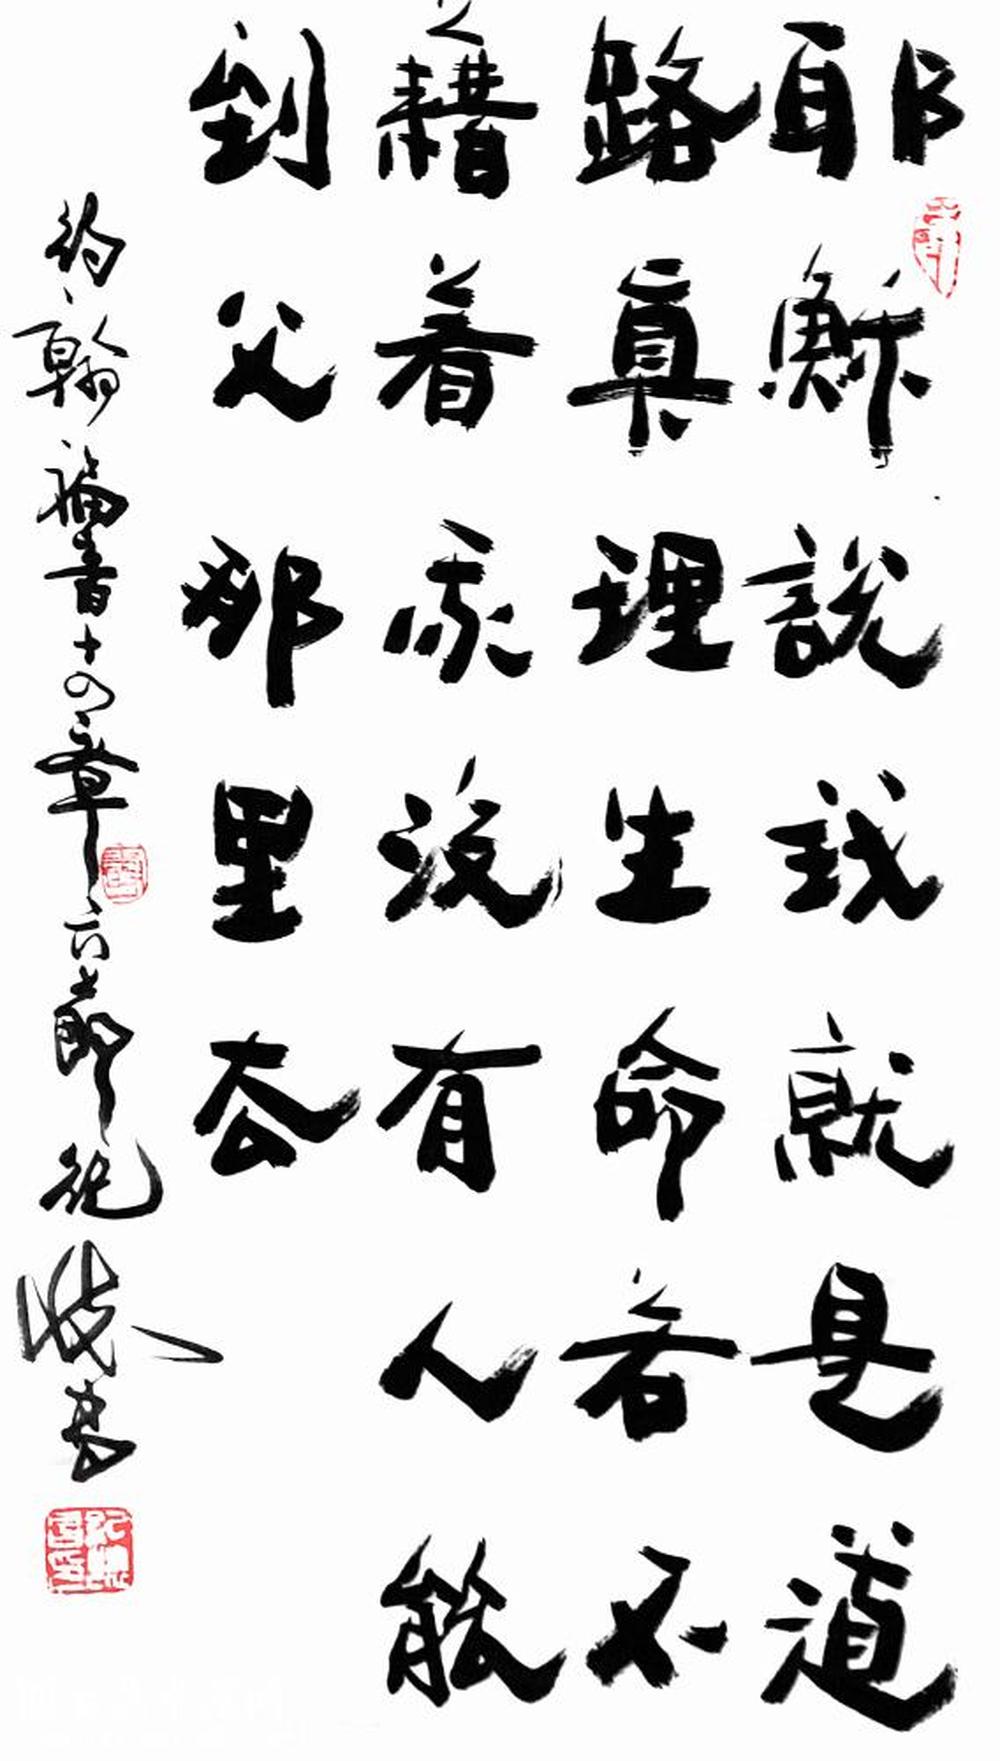 耶穌說我就是道
路真理生命若不
藉着我没有人能
到父那里去
約翰福音十四章六節